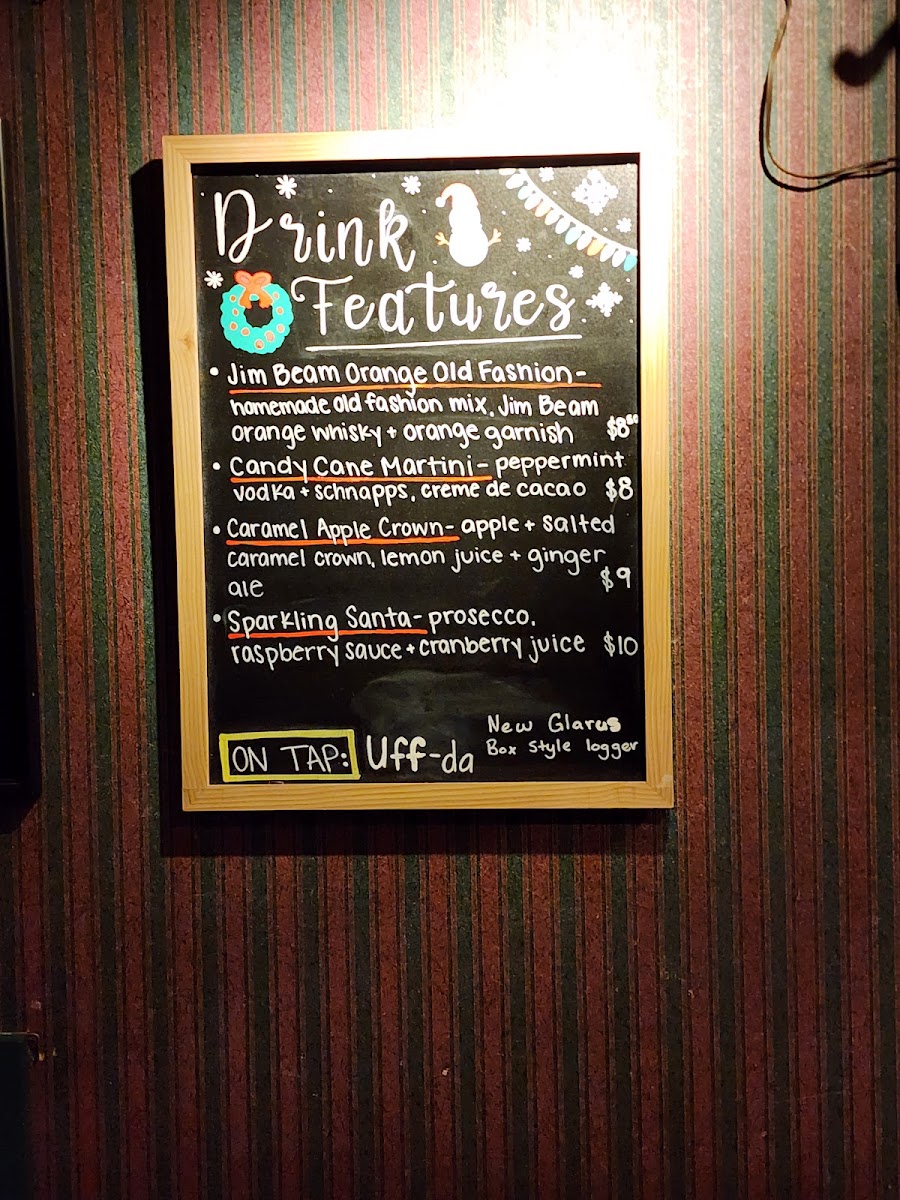 Drink
Features
• Jim Beam Orange Old Fashion-
homemade old fashion mix, Jim Beam
orange whisky + orange garnish $8⁵⁰
• Candy Cane Martini- peppermint
vodka + schnapps, creme de cacao $8
• Caramel Apple Crown- apple + salted
caramel crown, lemon juice + ginger
ale $9
• Sparkling Santa- prosecco,
raspberry sauce + cranberry juice $10
ON TAP: Uff-da New Glarus
Box Style logger